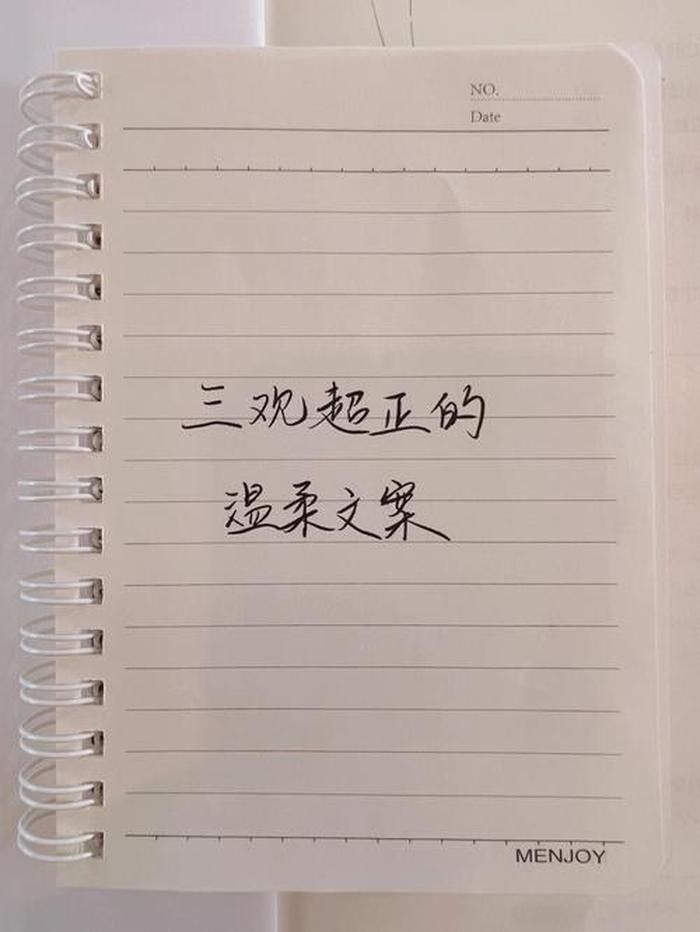 NO.
Date
三观超正的
温柔文案
MENJOY